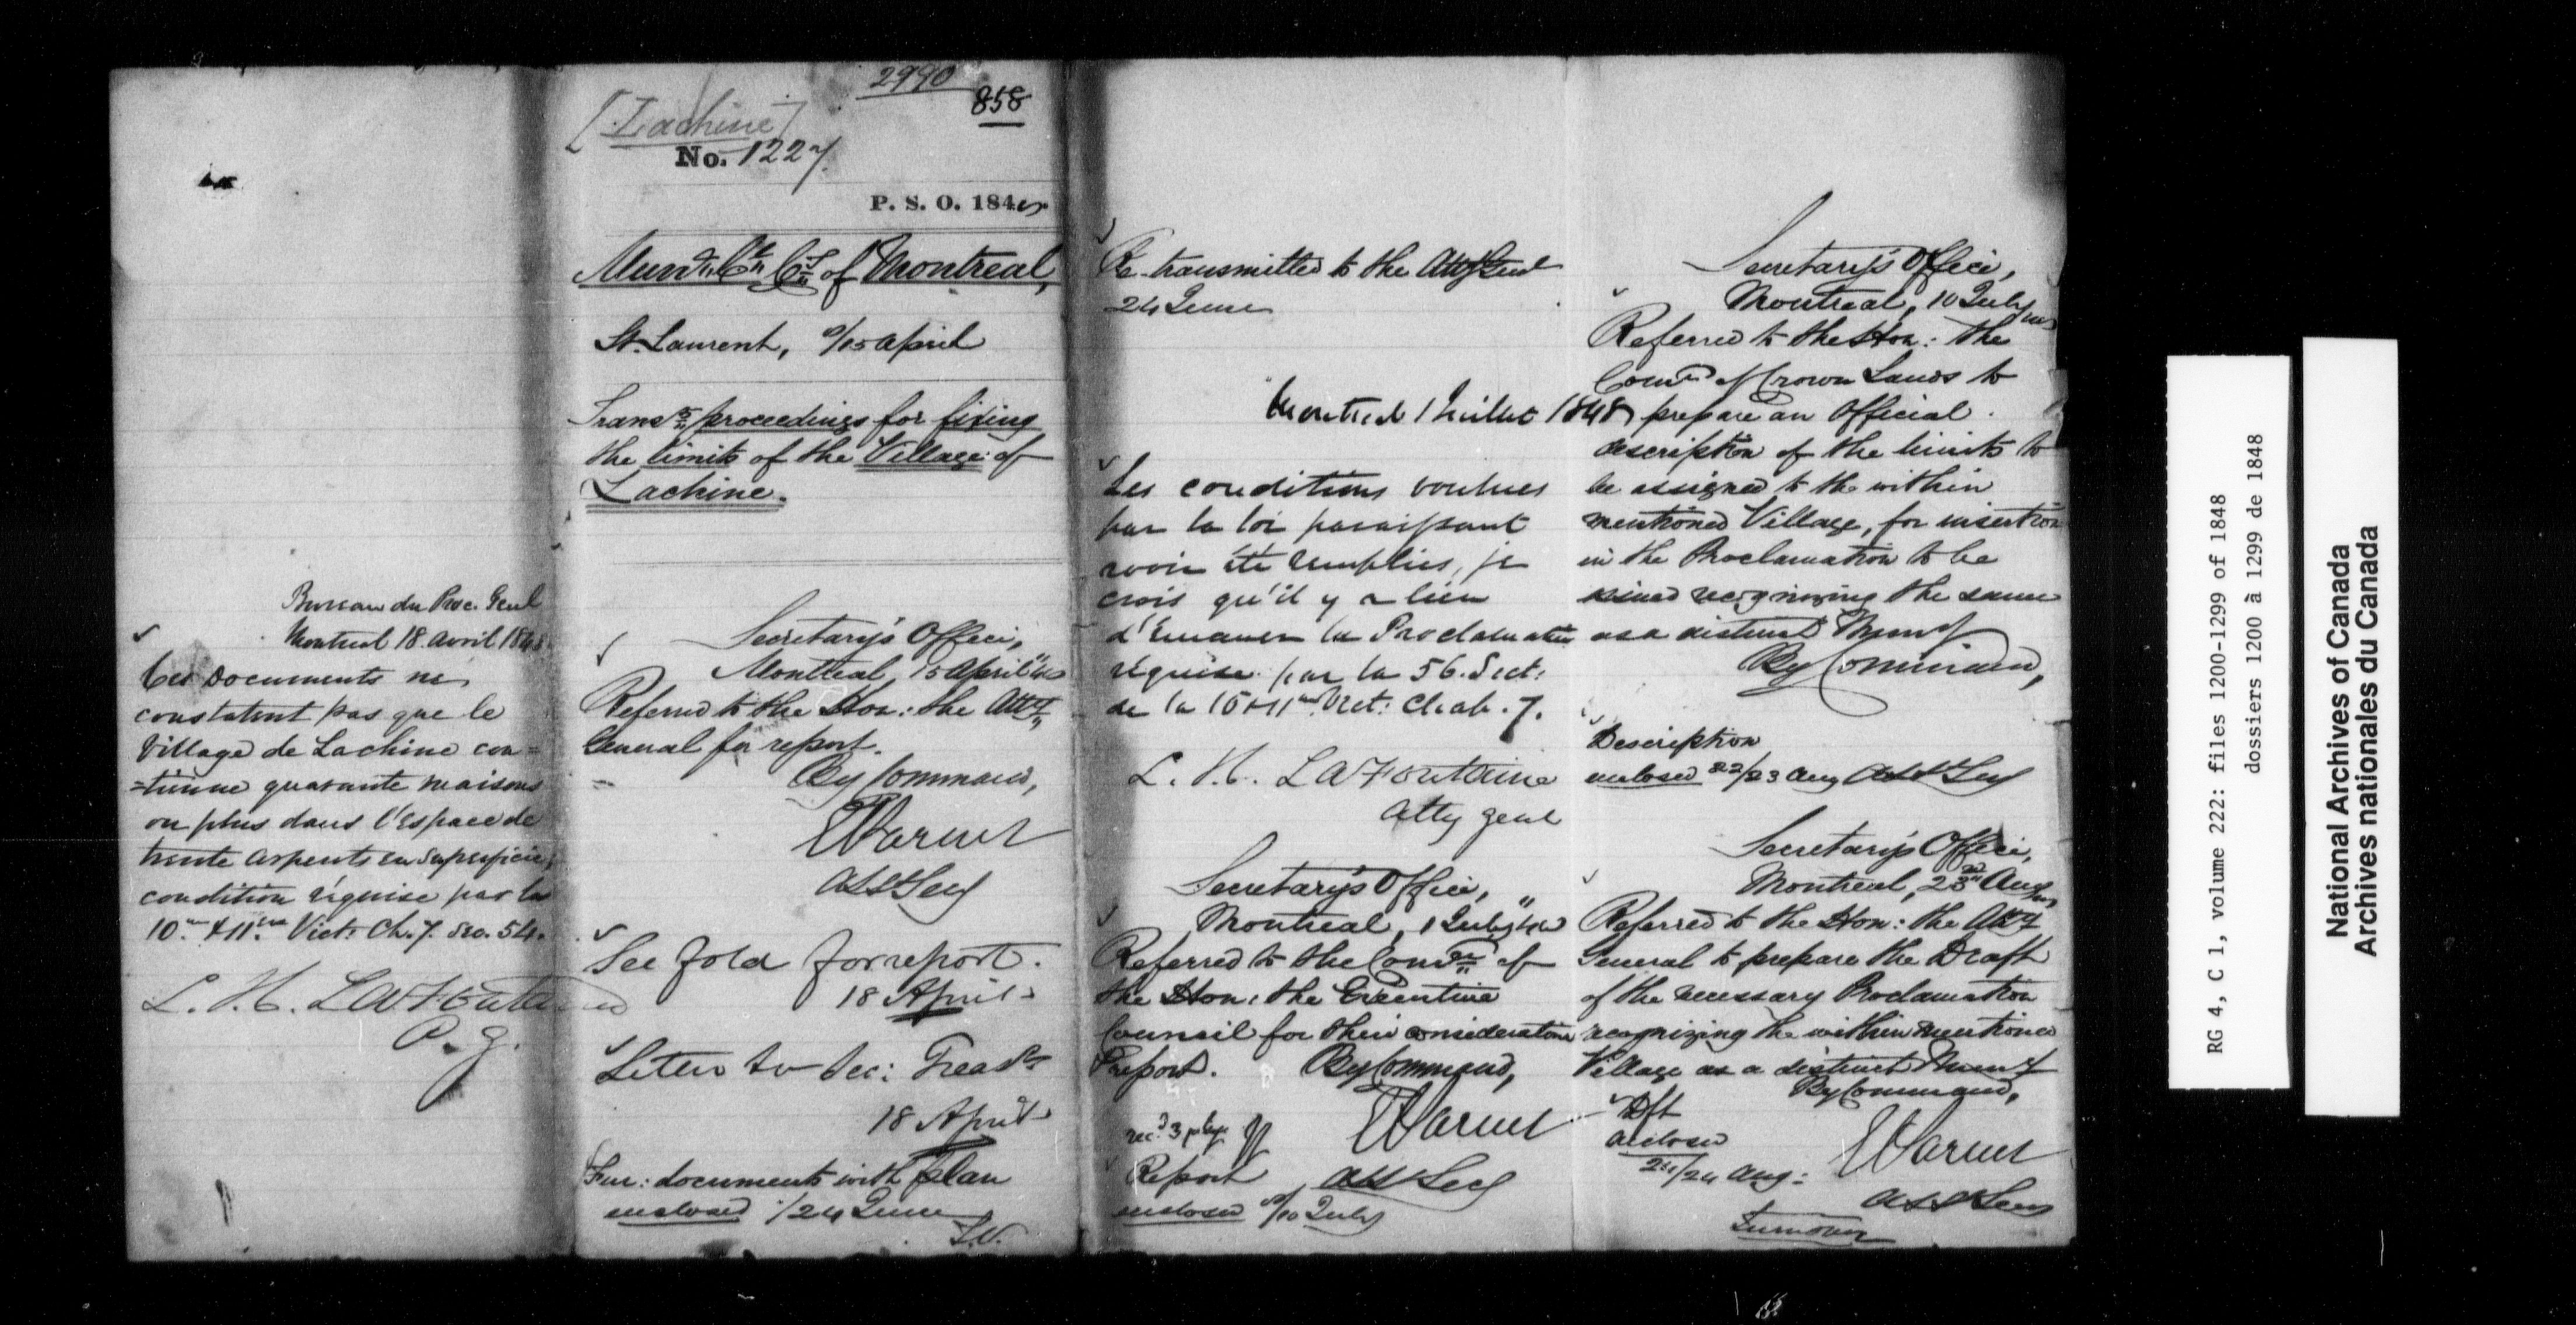 Bureau du Proc. Genl
Montreal 18 avril 1848
Ces Documents ne
constatent pas que le
Village de Lachine con=
=tienne quarante maisons
ou plus dans l'espace de
trente arpents en superficie,
condition réquise par la
10me & 11me Vict: Ch. 7. sec. 54.
L. H. LaFontaine
A. g.
2990
858
[Lachine]
No. 1227.
P. S. O. 1848
Munl. Cn. Co. of Montreal,
St. Laurent, 0/15 April
Transg. proceedings for fixing
the limits of the Village of
Lachine.
Secretary's Office,
Montreal, 15 April 48
Referred to the Hon: the Atty
General for report.
By Command,
E Parent
Asst Secy
See fold for report.
18 April
Letter to Sec: Treasr
18 April
Fur: documents with plan
enclosed /24 June
Re-transmitted to the Atty Genl
24 June
Montreal 1 Juillet 1848
Les conditions voulues
par la loi paraissant
avoir été remplies, je
crois qu'il y a lieu
d'émaner la Proclamation
réquise par la 56. Sect:
de la 10 & 11me Vict: Chap. 7.
L. H. LaFontaine
Atty genl
Secretary's Office,
Montreal, 1 July 48
Referred to the Comee of
the Hon: the Executive
Council for their consideration
& report. By Command,
E Parent
Asst Secy
recd 3 July
Report
enclosed /10 July
Secretary's Office,
Montreal, 10 July
Referred to the Hon: the
Comr of Crown Lands to
prepare an Official
description of the limits to
be assigned to the within
mentioned Village, for insertion
in the Proclamation to be
issued recognizing the same
as a distinct Muny
By Command,
Asst Secy
Description
enclosed 22/23 Aug
Secretary's Office,
Montreal, 23rd Aug
Referred to the Hon: the Atty
General to prepare the Draft
of the necessary Proclamation
recognizing the within mentioned
Village as a distinct Muny
By Command,
E Parent
Asst Secy
Dft
enclosed
24/24 Aug:
Turnover
RG 4, C 1, volume 222: files 1200-1299 of 1848
dossiers 1200 à 1299 de 1848
National Archives of Canada
Archives nationales du Canada